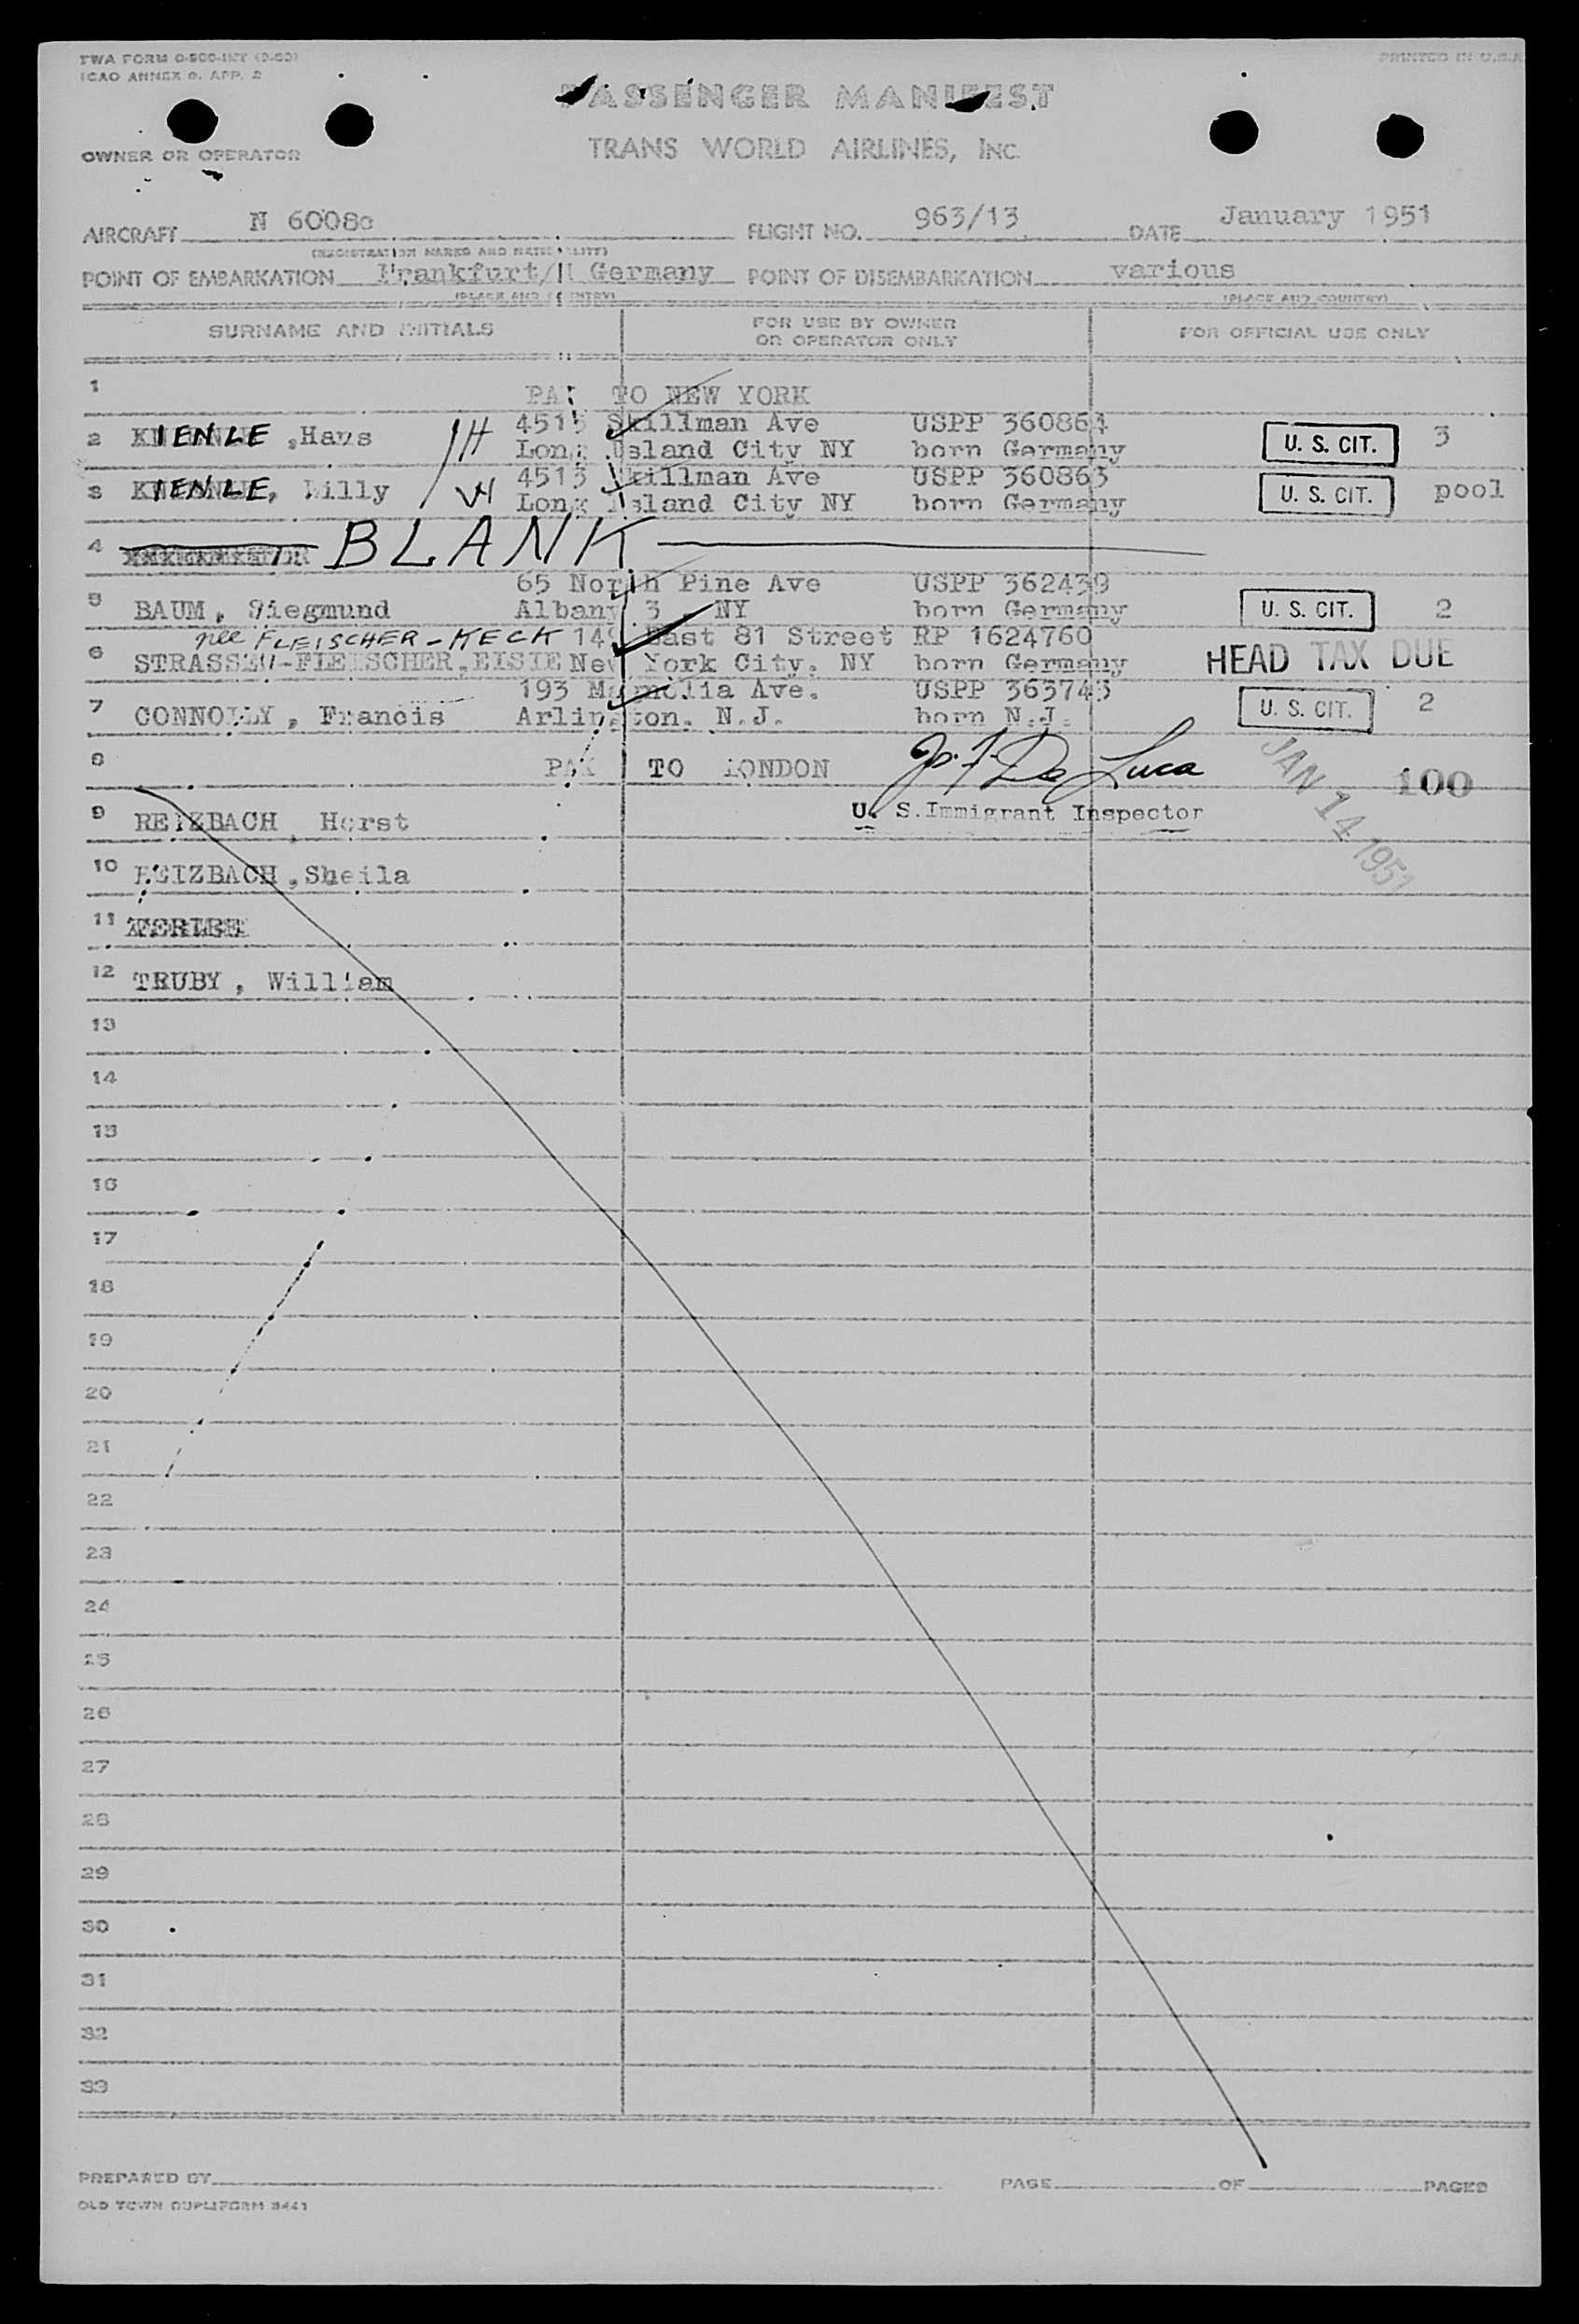 TWA FORM 0-500-INT (9-50)
PRINTED IN U.S.A.
ICAO ANNEX 9. APP. 2
PASSENGER MANIFEST
OWNER OR OPERATOR
TRANS WORLD AIRLINES, INC.
AIRCRAFT N 6008c FLIGHT NO. 963/13 DATE January 1951
(REGISTRATION MARKS AND NATIONALITY)
POINT OF EMBARKATION Frankfurt/M Germany POINT OF DISEMBARKATION various
(PLACE AND COUNTRY) (PLACE AND COUNTRY)
SURNAME AND INITIALS FOR USE BY OWNER OR OPERATOR ONLY FOR OFFICIAL USE ONLY
1 PAX TO NEW YORK
4515 Skillman Ave USPP 360864
2 KIENLE ,Hans H Long Island City NY born Germany U. S. CIT. 3
4513 Skillman Ave USPP 360863
3 KIENLE, Lilly W Long Island City NY born Germany U. S. CIT. pool
4 BLANK
65 North Pine Ave USPP 362439
5 BAUM, Siegmund Albany 3 , NY born Germany U. S. CIT. 2
née FLEISCHER-KECK 149 East 81 Street RP 1624760
6 STRASSEU-FLEISCHER,ELSIE New York City. NY born Germany HEAD TAX DUE
193 Magnolia Ave. USPP 363743
7 CONNOLLY, Francis Arlington. N.J. born N.J. U. S. CIT. 2
8 PAX TO LONDON Jo. F. De Luca JAN 14 1951 100
9 REIZBACH, Horst U. S. Immigrant Inspector
10 REIZBACH ,Sheila
11
12 TRUBY, William
13
14
15
16
17
18
19
20
21
22
23
24
25
26
27
28
29
30
31
32
33
PREPARED BY PAGE OF PAGES
OLD TOWN DUPLIFORM 8441